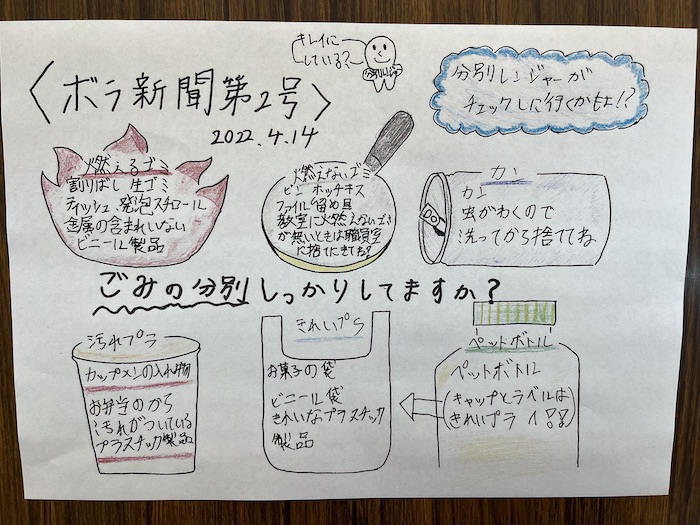 キレイに
している?
分別レンジャー
分別レンジャーが
チェックしに行くかもよ!?
〈ボラ新聞第2号〉
2022.4.14
燃えるゴミ
割りばし 生ゴミ
ティッシュ 発泡スチロール
金属の含まれいない
ビニール製品
燃えないゴミ
ビン ホッチキス
ファイル留め具
教室に燃えないゴミ
が無いときは職員室
に捨てにきてね?
カン
カン
虫がわくので
洗ってから捨ててね
ごみの分別しっかりしてますか?
汚れプラ
カップメンの入れ物
お弁当のから
汚れがついている
プラスチック製品
きれいプラ
お菓子の袋
ビニール袋
きれいなプラスチック
製品
ペットボトル
ペットボトル
(キャップとラベルは
きれいプラへ!!)